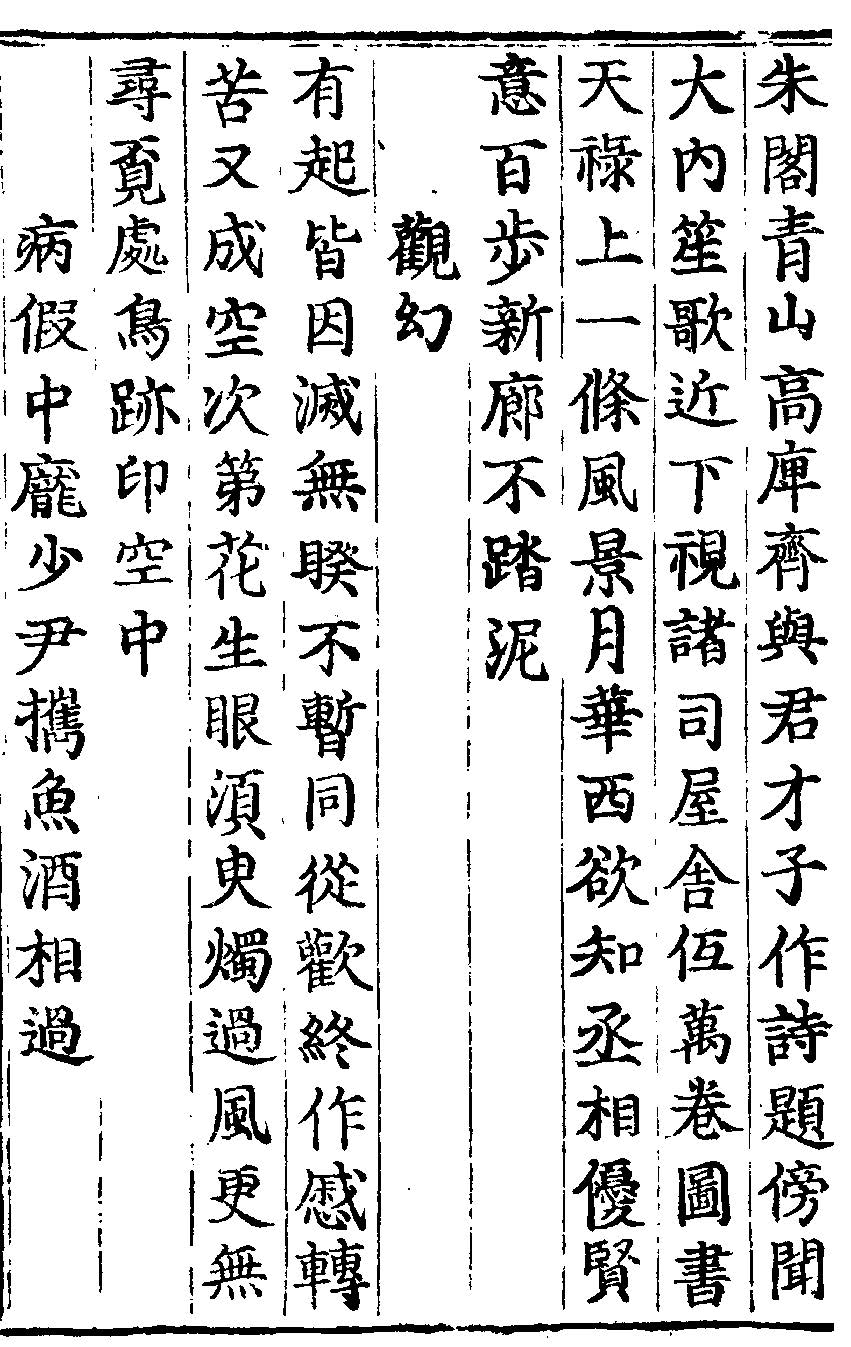 朱閣青山高庳齊與君才子作詩題傍聞
大內笙歌近下視諸司屋舍伍萬卷圖書
天祿上一條風景月華西欲知丞相優賢
意百步新廊不踏泥
觀幻
有起皆因滅無睽不暫同從歡終作慼轉
苦又成空次第花生眼須臾燭過風更無
尋覔處鳥跡印空中
病假中龐少尹攜魚酒相過